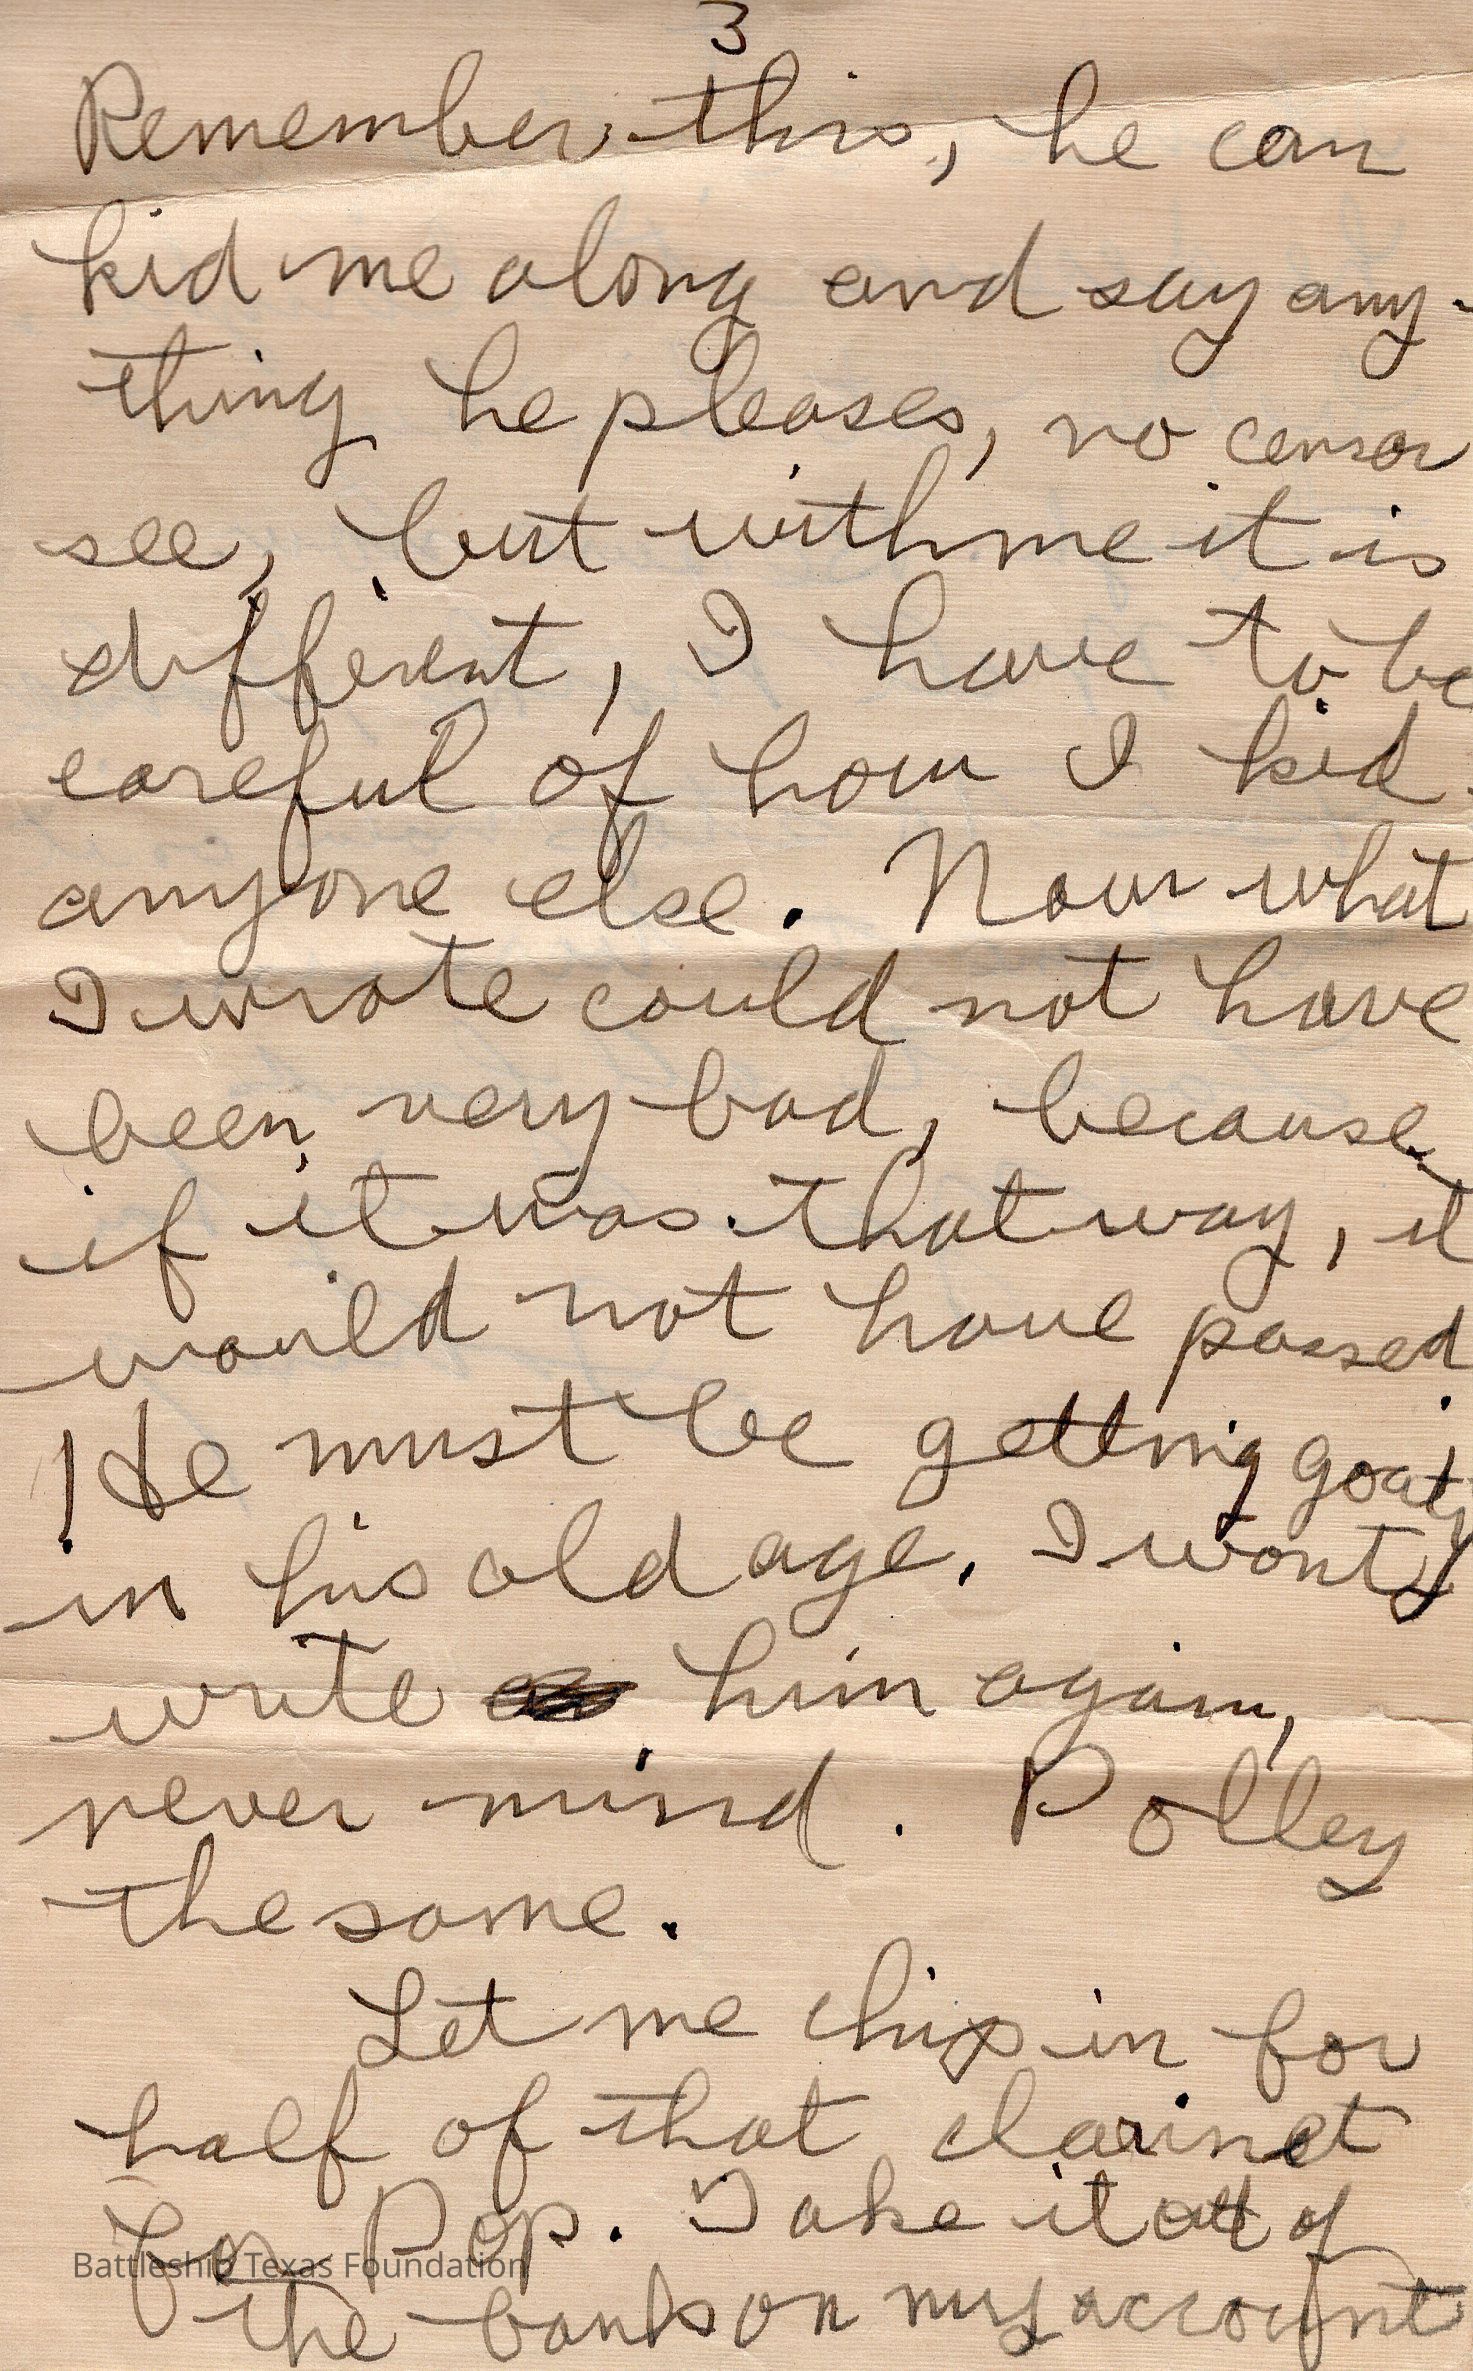 3
Remember this, he can
kid me along and say any-
thing he pleases, no censor
see, but with me it is
different, I have to be
careful of how I kid
anyone else. Now what
I wrote could not have
been very bad, because
if it was that way, it
would not have passed.
He must be getting goaty
in his old age. I wont
write him again,
never mind. Polley
the same.
Let me chip in for
half of that clarinet
for Pop. Take it out of
the bank on my account
Battleship Texas Foundation